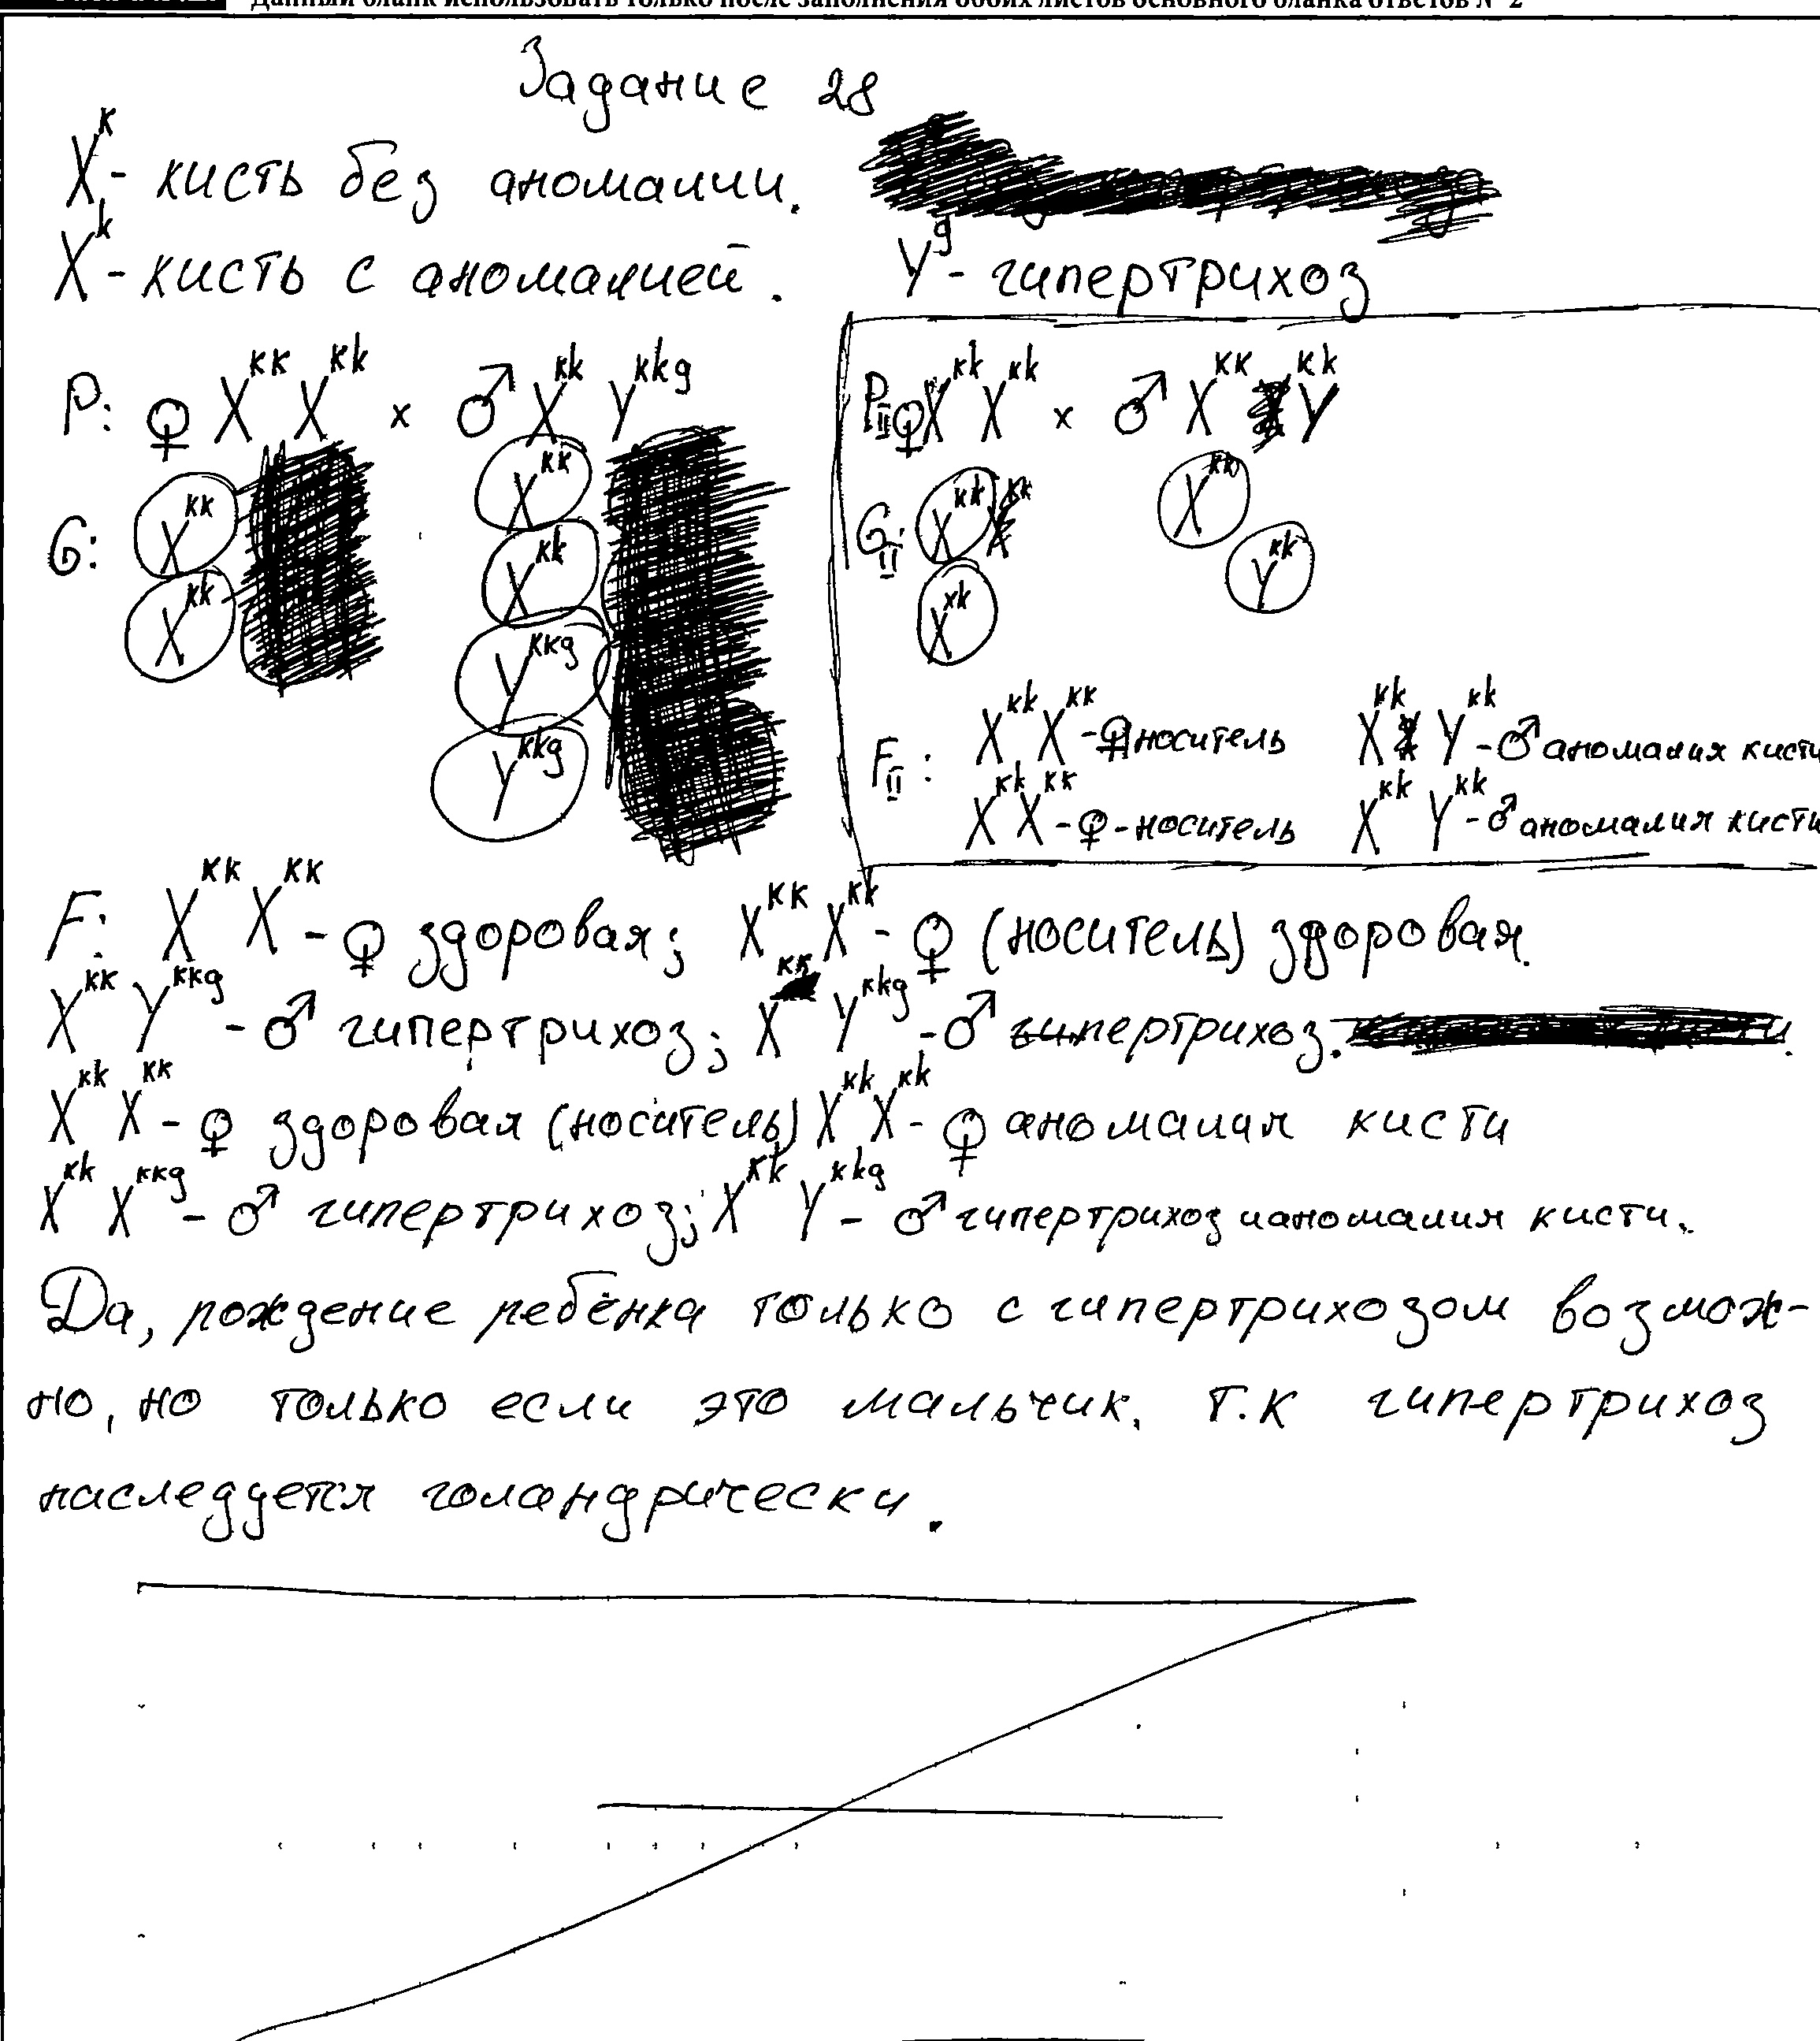 Данный бланк использовать только после заполнения обоих листов основного бланка ответов № 2
Задание 28
X^K - кисть без аномалии.
X^k - кисть с аномалией. Y^g - гипертрихоз
P: ♀ X^KK X^Kk x ♂ X^Kk Y^Kkg
G: X^KK X^Kk X^KK X^Kk Y^KKg Y^Kkg
P_II ♀ X^Kk X^Kk x ♂ X^KK Y^Kk
G_II: X^Kk X^KK
X^Kk Y^Kk
F_II: X^Kk X^KK - ♀ носитель X^Kk Y^Kk - ♂ аномалия кисти
X^Kk X^KK - ♀ - носитель X^Kk Y^Kk - ♂ аномалия кисти
F: X^KK X^KK - ♀ здоровая; X^KK X^Kk - ♀ (носитель) здоровая.
X^KK Y^KKg - ♂ гипертрихоз; X^KK Y^Kkg - ♂ гипертрихоз.
X^Kk X^KK - ♀ здоровая (носитель) X^Kk X^Kk - ♀ аномалия кисти
X^Kk X^KKg - ♂ гипертрихоз; X^Kk Y^Kkg - ♂ гипертрихоз и аномалия кисти.
Да, рождение ребёнка только с гипертрихозом возмож-
но, но только если это мальчик. т.к гипертрихоз
наследуется голандрически.